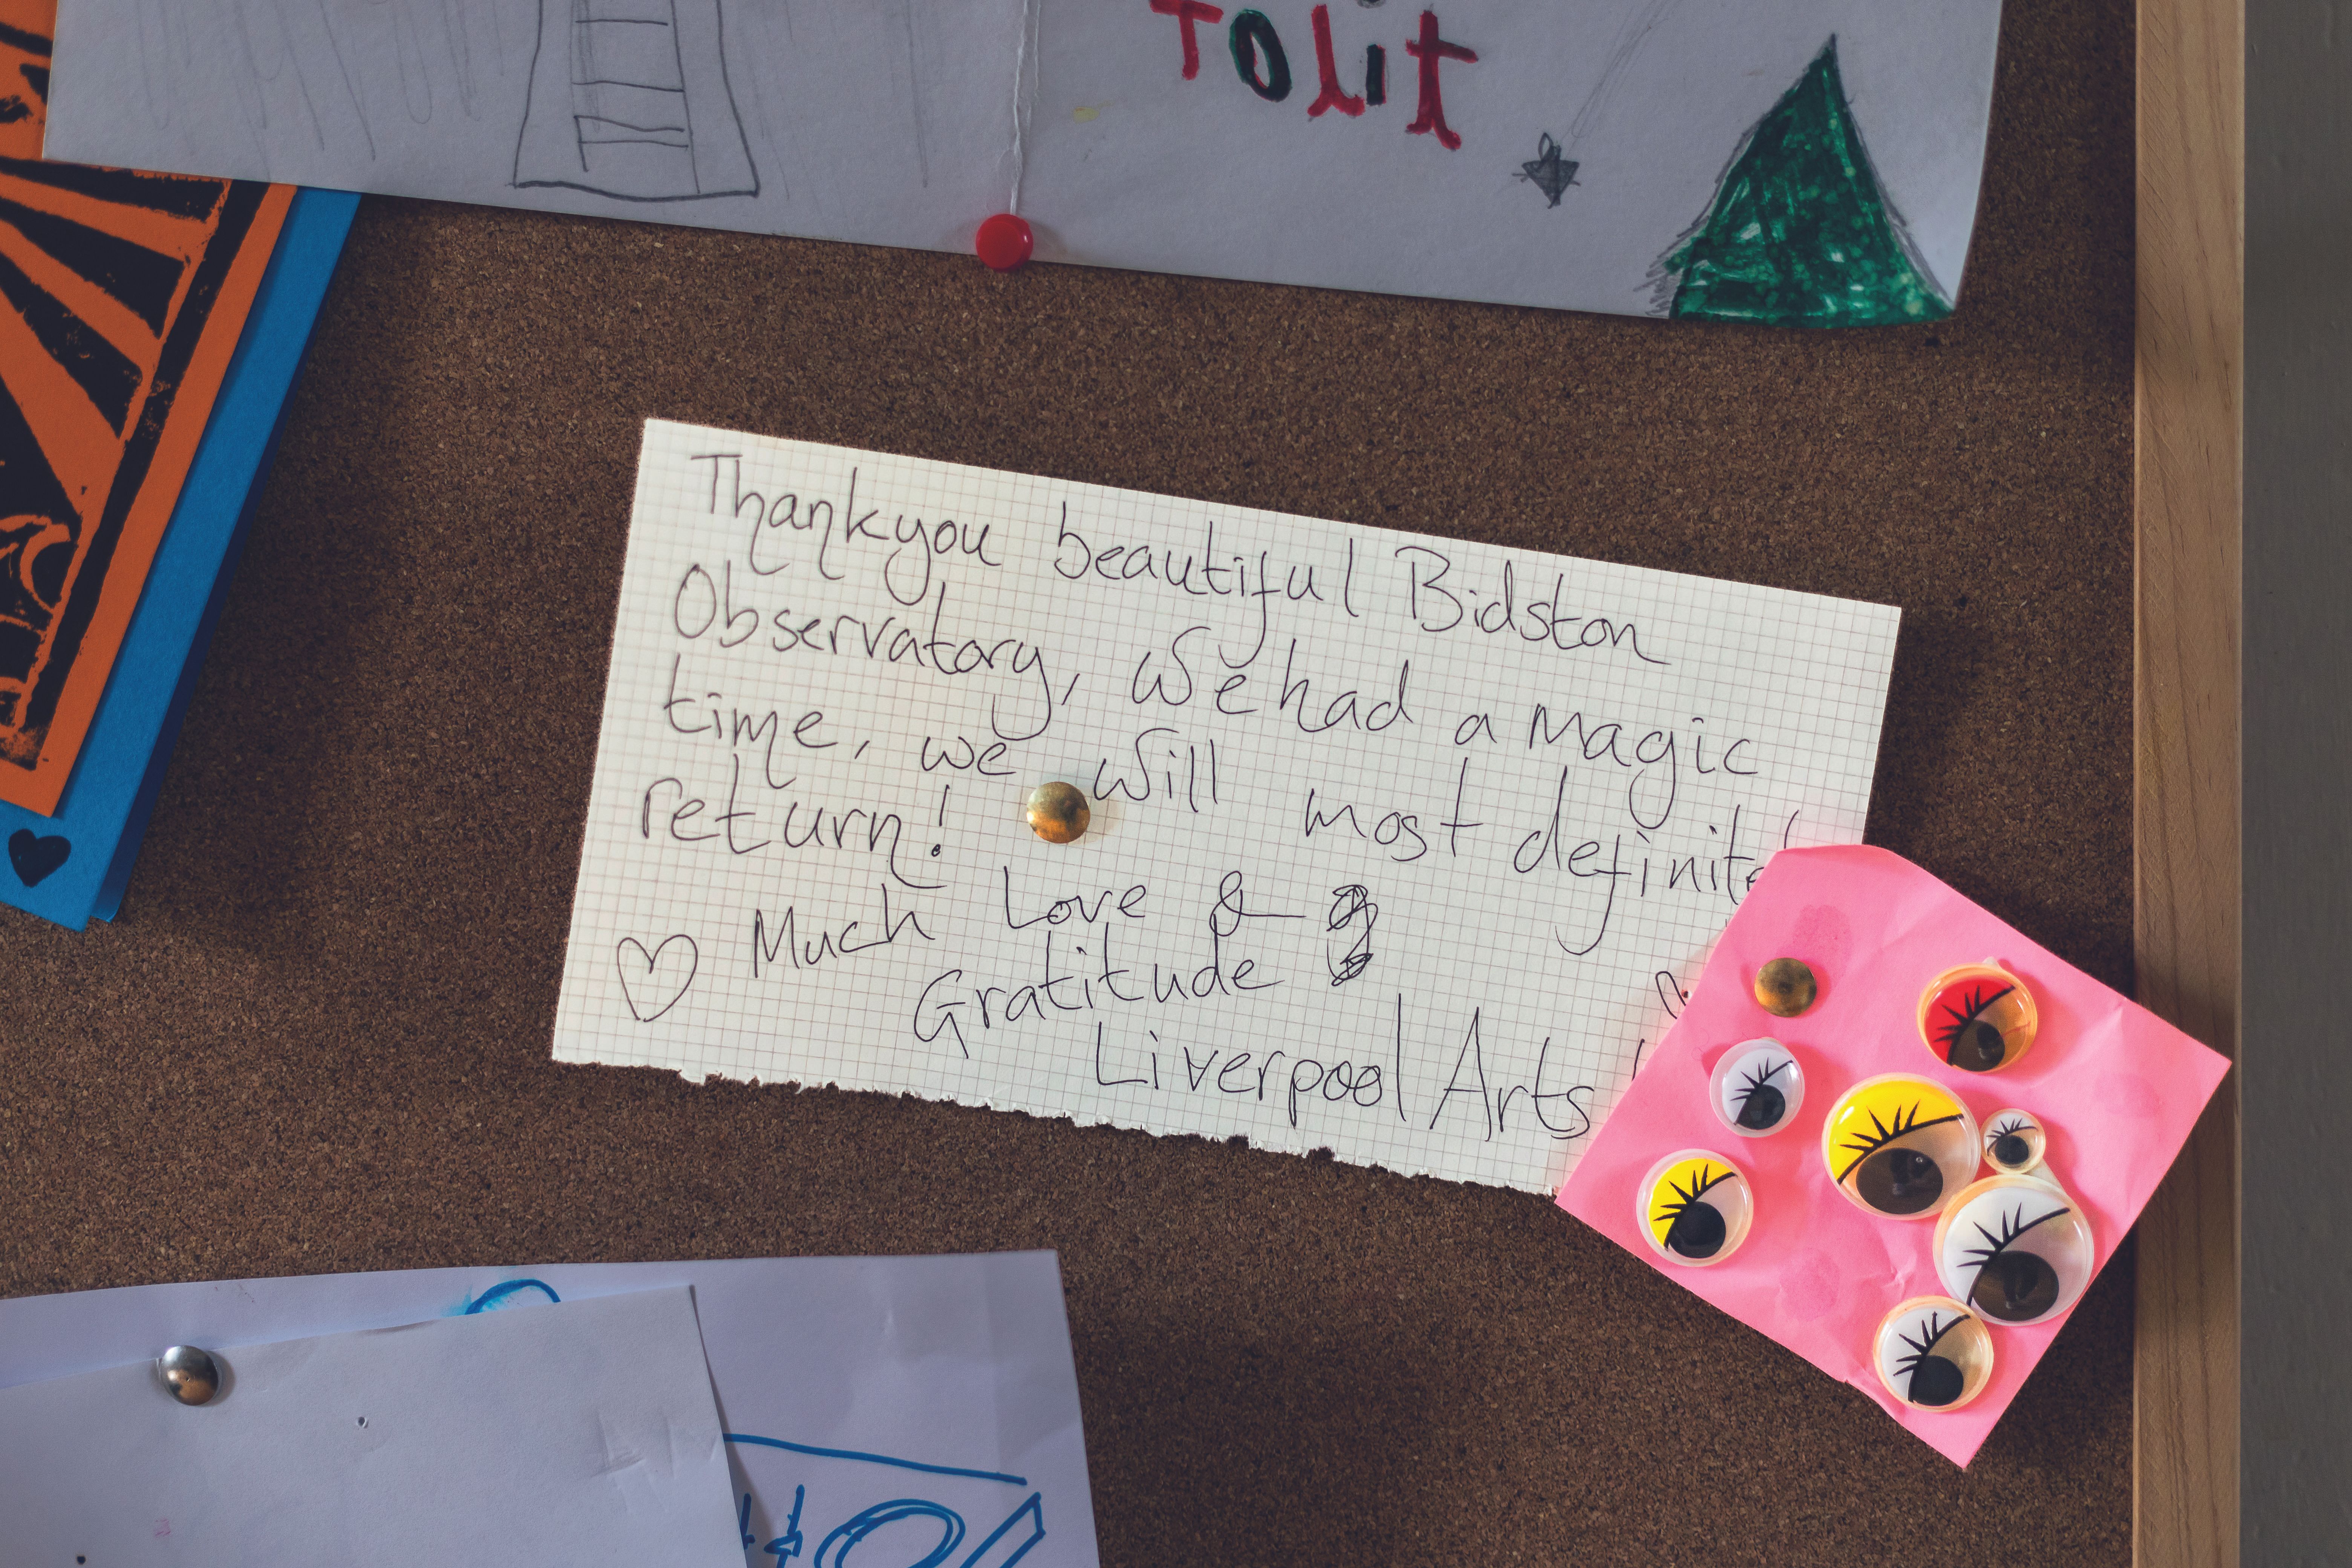 Tolit
Thankyou beautiful Bidston
Observatory, We had a magic
time, we will most definite
return!
Much Love &
Gratitude
Liverpool Arts